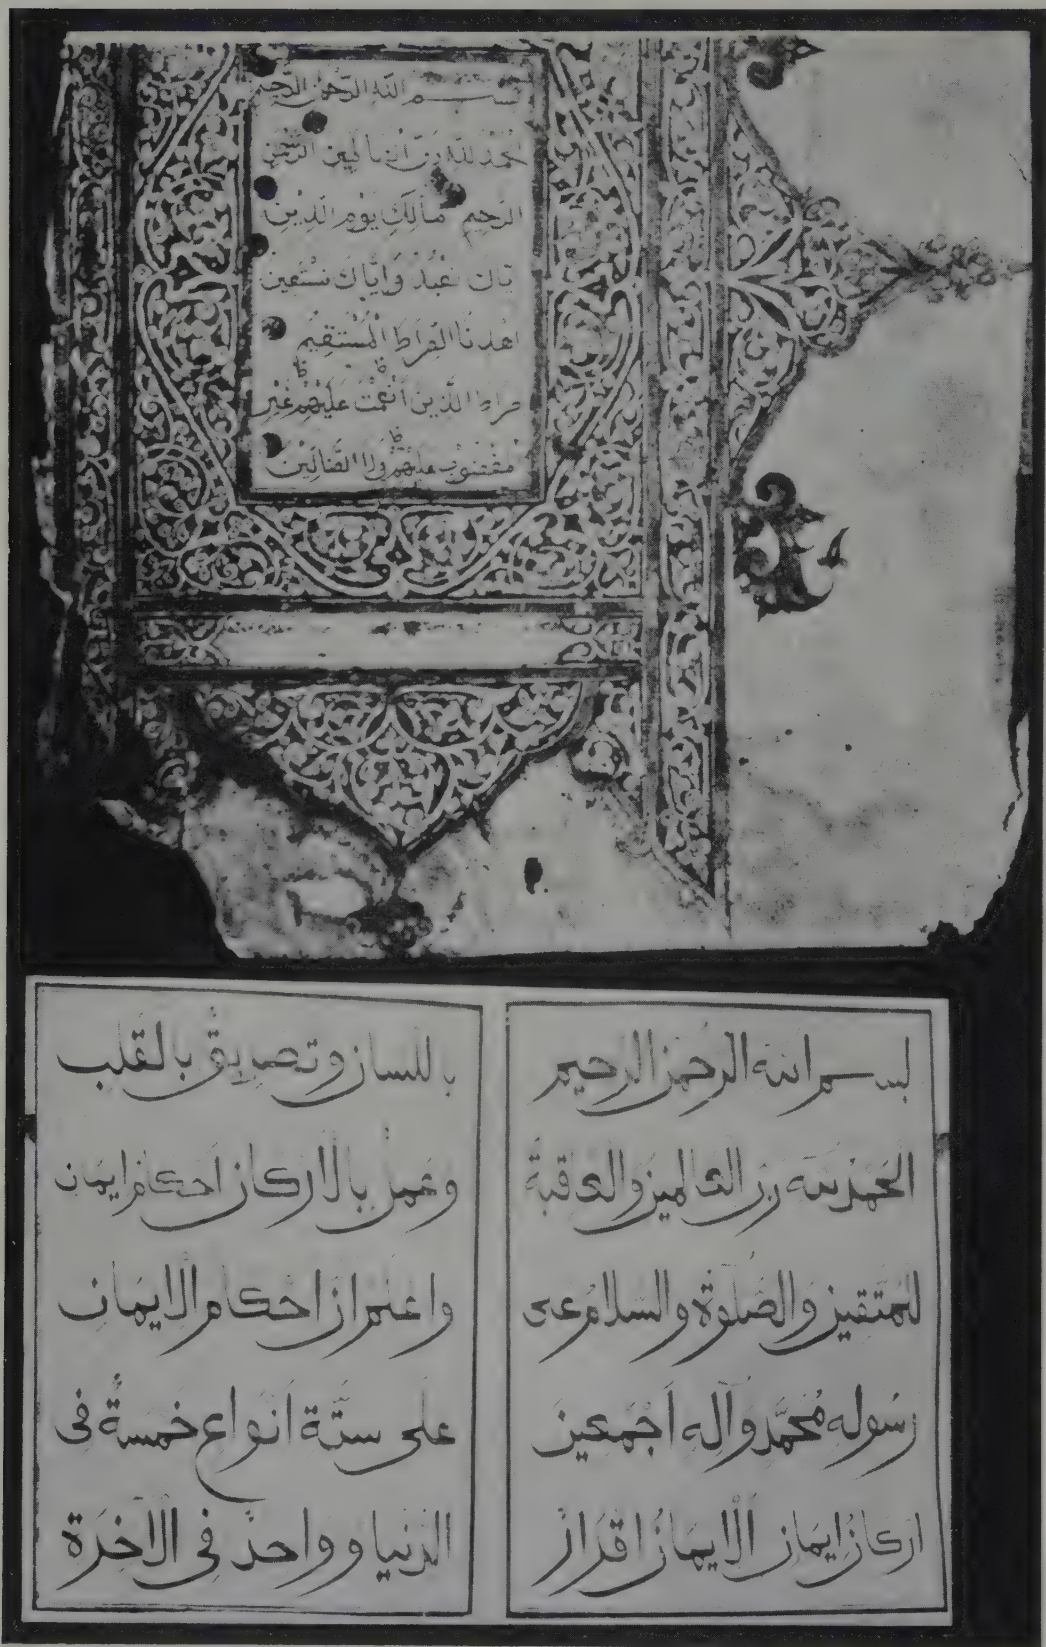 بسم الله الرحمن الرحيم
الحمد لله رب العالمين الرحمن
الرحيم مالك يوم الدين
ياك نعبد وإياك نستعين
اهدنا الصراط المستقيم
صراط الذين أنعمت عليهم غير
مغضوب عليهم ولا الضالين
بسم الله الرحمن الرحيم
الحمد لله رب العالمين والعاقبة
للمتقين والصلوة والسلام على
رسوله محمد وآله أجمعين
اركان ايمان الايمان اقرار
باللسان وتصديق بالقلب
وعمل بالاركان احكام ايمان
واعلم ان احكام الايمان
على ستة انواع خمسة في
الدنيا وواحد في الآخرة